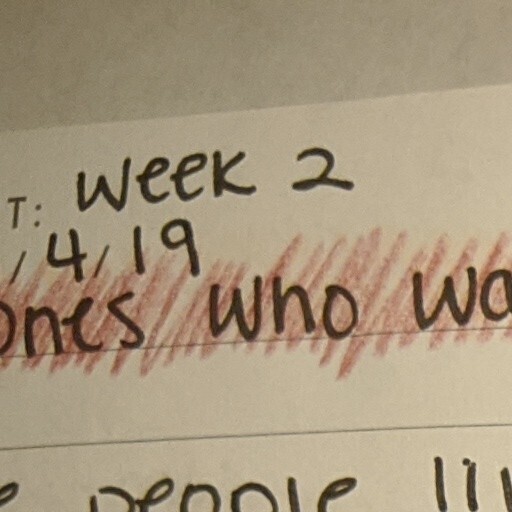 T: Week 2
/4/19
ones who wa
people li